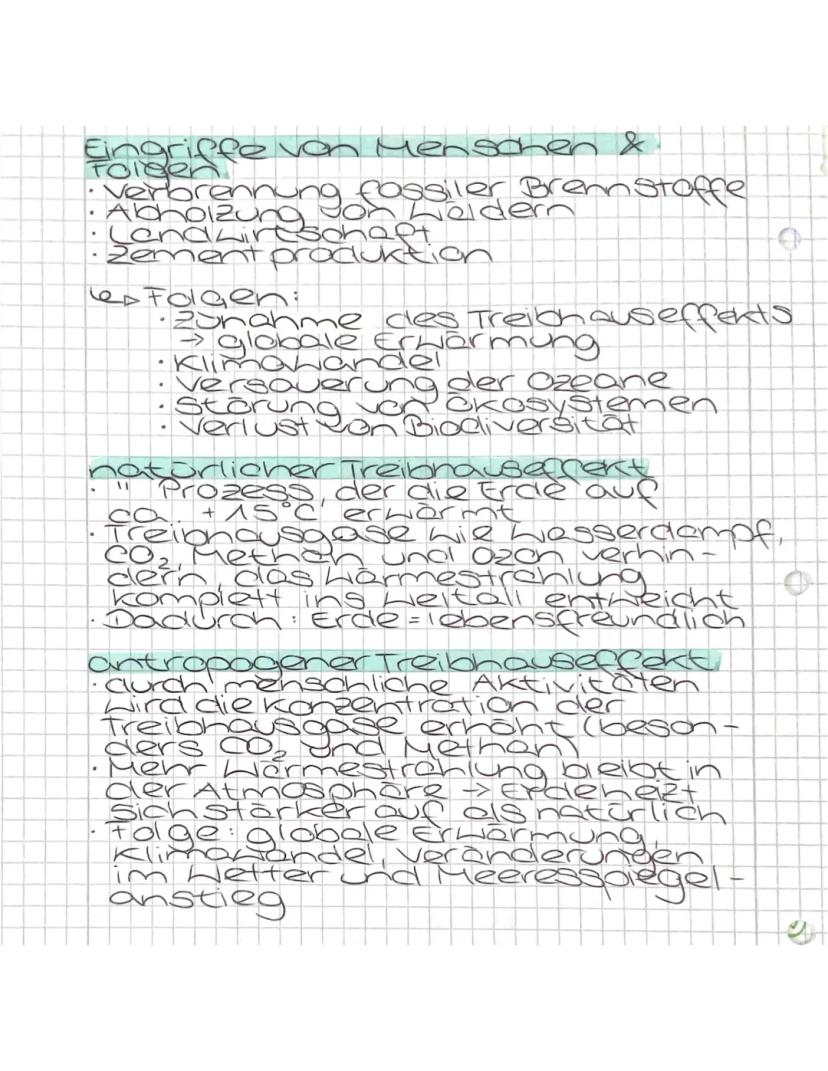 Eingriffe von Menschen &
Folgen
· Verbrennung fossiler Brennstoffe
· Abholzung von Wäldern
· Landwirtschaft
· Zementproduktion
↳ Folgen:
· Zunahme des Treibhauseffekts
→ globale Erwärmung
· Klimawandel
· Versauerung der Ozeane
· Störung von Ökosystemen
· Verlust von Biodiversität
natürlicher Treibhauseffekt
· " Prozess, der die Erde auf
ca. +15°C erwärmt
· Treibhausgase wie Wasserdampf,
CO₂, Methan und Ozon verhin-
dern, das Wärmestrahlung
komplett ins Weltall entweicht
· Dadurch: Erde = lebensfreundlich
antropogener Treibhauseffekt
· durch menschliche Aktivitäten
wird die Konzentration der
Treibhausgase erhöht (beson-
ders CO₂ und Methan)
· Mehr Wärmestrahlung bleibt in
der Atmosphäre → Erde heizt
sich stärker auf als natürlich
· Folge: globale Erwärmung,
Klimawandel, Veränderungen
im Wetter und Meeresspiegel-
anstieg